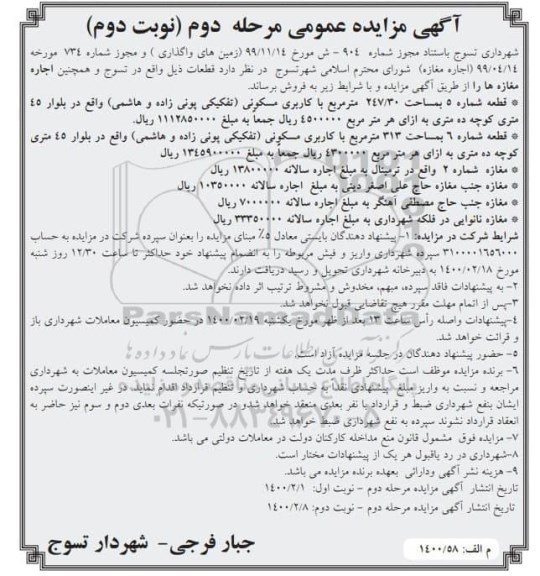 آگهی مزایده عمومی مرحله دوم (نوبت دوم)
شهرداری تسوج باستناد مجوز شماره ۹۰۴ - ش مورخ ۹۹/۱۱/۱۴ (زمین های واگذاری ) و مجوز شماره ۷۳۴ مورخه
۹۹/۰۴/۱۴ (اجاره مغازه) شورای محترم اسلامی شهرتسوج در نظر دارد قطعات ذیل واقع در تسوج و همچنین اجاره
مغازه ها را از طریق آگهی مزایده و با شرایط زیر به فروش برساند.
* قطعه شماره ۵ بمساحت ۲۴۷/۳۰ مترمربع با کاربری مسکونی (تفکیکی پونی زاده و هاشمی) واقع در بلوار ۴۵
متری کوچه ده متری به ازای هر متر مربع ۴۵۰۰۰۰۰ ریال جمعاً به مبلغ ۱۱۱۲۸۵۰۰۰۰ ریال.
* قطعه شماره ۶ بمساحت ۳۱۳ مترمربع با کاربری مسکونی (تفکیکی پونی زاده و هاشمی) واقع در بلوار ۴۵ متری
کوچه ده متری به ازای هر متر مربع ۴۳۰۰۰۰۰ ریال جمعاً به مبلغ ۱۳۴۵۹۰۰۰۰۰ ریال
* مغازه شماره ۲ واقع در ترمینال به مبلغ اجاره سالانه ۱۳۸۰۰۰۰۰ ریال
* مغازه جنب مغازه حاج علی اصغر دینی به مبلغ اجاره سالانه ۱۰۳۵۰۰۰۰ ریال
* مغازه جنب حاج مصطفی آهنگر به مبلغ اجاره سالانه ۷۰۰۰۰۰۰ ریال
* مغازه نانوایی در فلکه شهرداری به مبلغ اجاره سالانه ۳۳۳۵۰۰۰۰ ریال
شرایط شرکت در مزایده: ۱- پیشنهاد دهندگان بایستی معادل ۵٪ مبنای مزایده را بعنوان سپرده شرکت در مزایده به حساب
۳۱۰۰۰۰۱۶۵۶۰۰۰ سپرده شهرداری واریز و فیش مربوطه را به انضمام پیشنهاد خود حداکثر تا ساعت ۱۲/۳۰ روز شنبه
مورخ ۱۴۰۰/۰۲/۱۸ به دبیرخانه شهرداری تحویل و رسید دریافت دارند.
۲- به پیشنهادات فاقد سپرده، مبهم، مخدوش و مشروط ترتیب اثر داده نخواهد شد.
۳-پس از اتمام مهلت مقرر هیچ تقاضایی قبول نخواهد شد.
۴-پیشنهادات واصله رأس ساعت ۱۳ بعد از ظهر مورخ یکشنبه ۱۴۰۰/۰۲/۱۹ در حضور کمیسیون معاملات شهرداری باز
و قرائت خواهد شد.
۵- حضور پیشنهاد دهندگان در جلسه مزایده آزاد است.
۶- برنده مزایده موظف است حداکثر ظرف مدت یک هفته از تاریخ تنظیم صورتجلسه کمیسیون معاملات به شهرداری
مراجعه و نسبت به واریز مبلغ پیشنهادی نقداً به حساب شهرداری و تنظیم قرارداد اقدام نماید. در غیر اینصورت سپرده
ایشان بنفع شهرداری ضبط و قرارداد با نفر بعدی منعقد خواهد شد و در صورتیکه نفرات بعدی دوم و سوم نیز حاضر به
انعقاد قرارداد نشوند سپرده به نفع شهرداری ضبط خواهد شد.
۷- مزایده فوق مشمول قانون منع مداخله کارکنان دولت در معاملات دولتی می باشد.
۸-شهرداری در رد یاقبول هر یک از پیشنهادات مختار است.
۹- هزینه نشر آگهی ودارائی بعهده برنده مزایده می باشد.
تاریخ انتشار آگهی مزایده مرحله دوم - نوبت اول: ۱۴۰۰/۲/۱
تاریخ انتشار آگهی مزایده مرحله دوم - نوبت دوم: ۱۴۰۰/۲/۸
جبار فرجی- شهردار تسوج
م الف: ۱۴۰۰/۵۸
ParsNamadData
۰۲۱-۸۸۳۴۹۶۷۰-۵